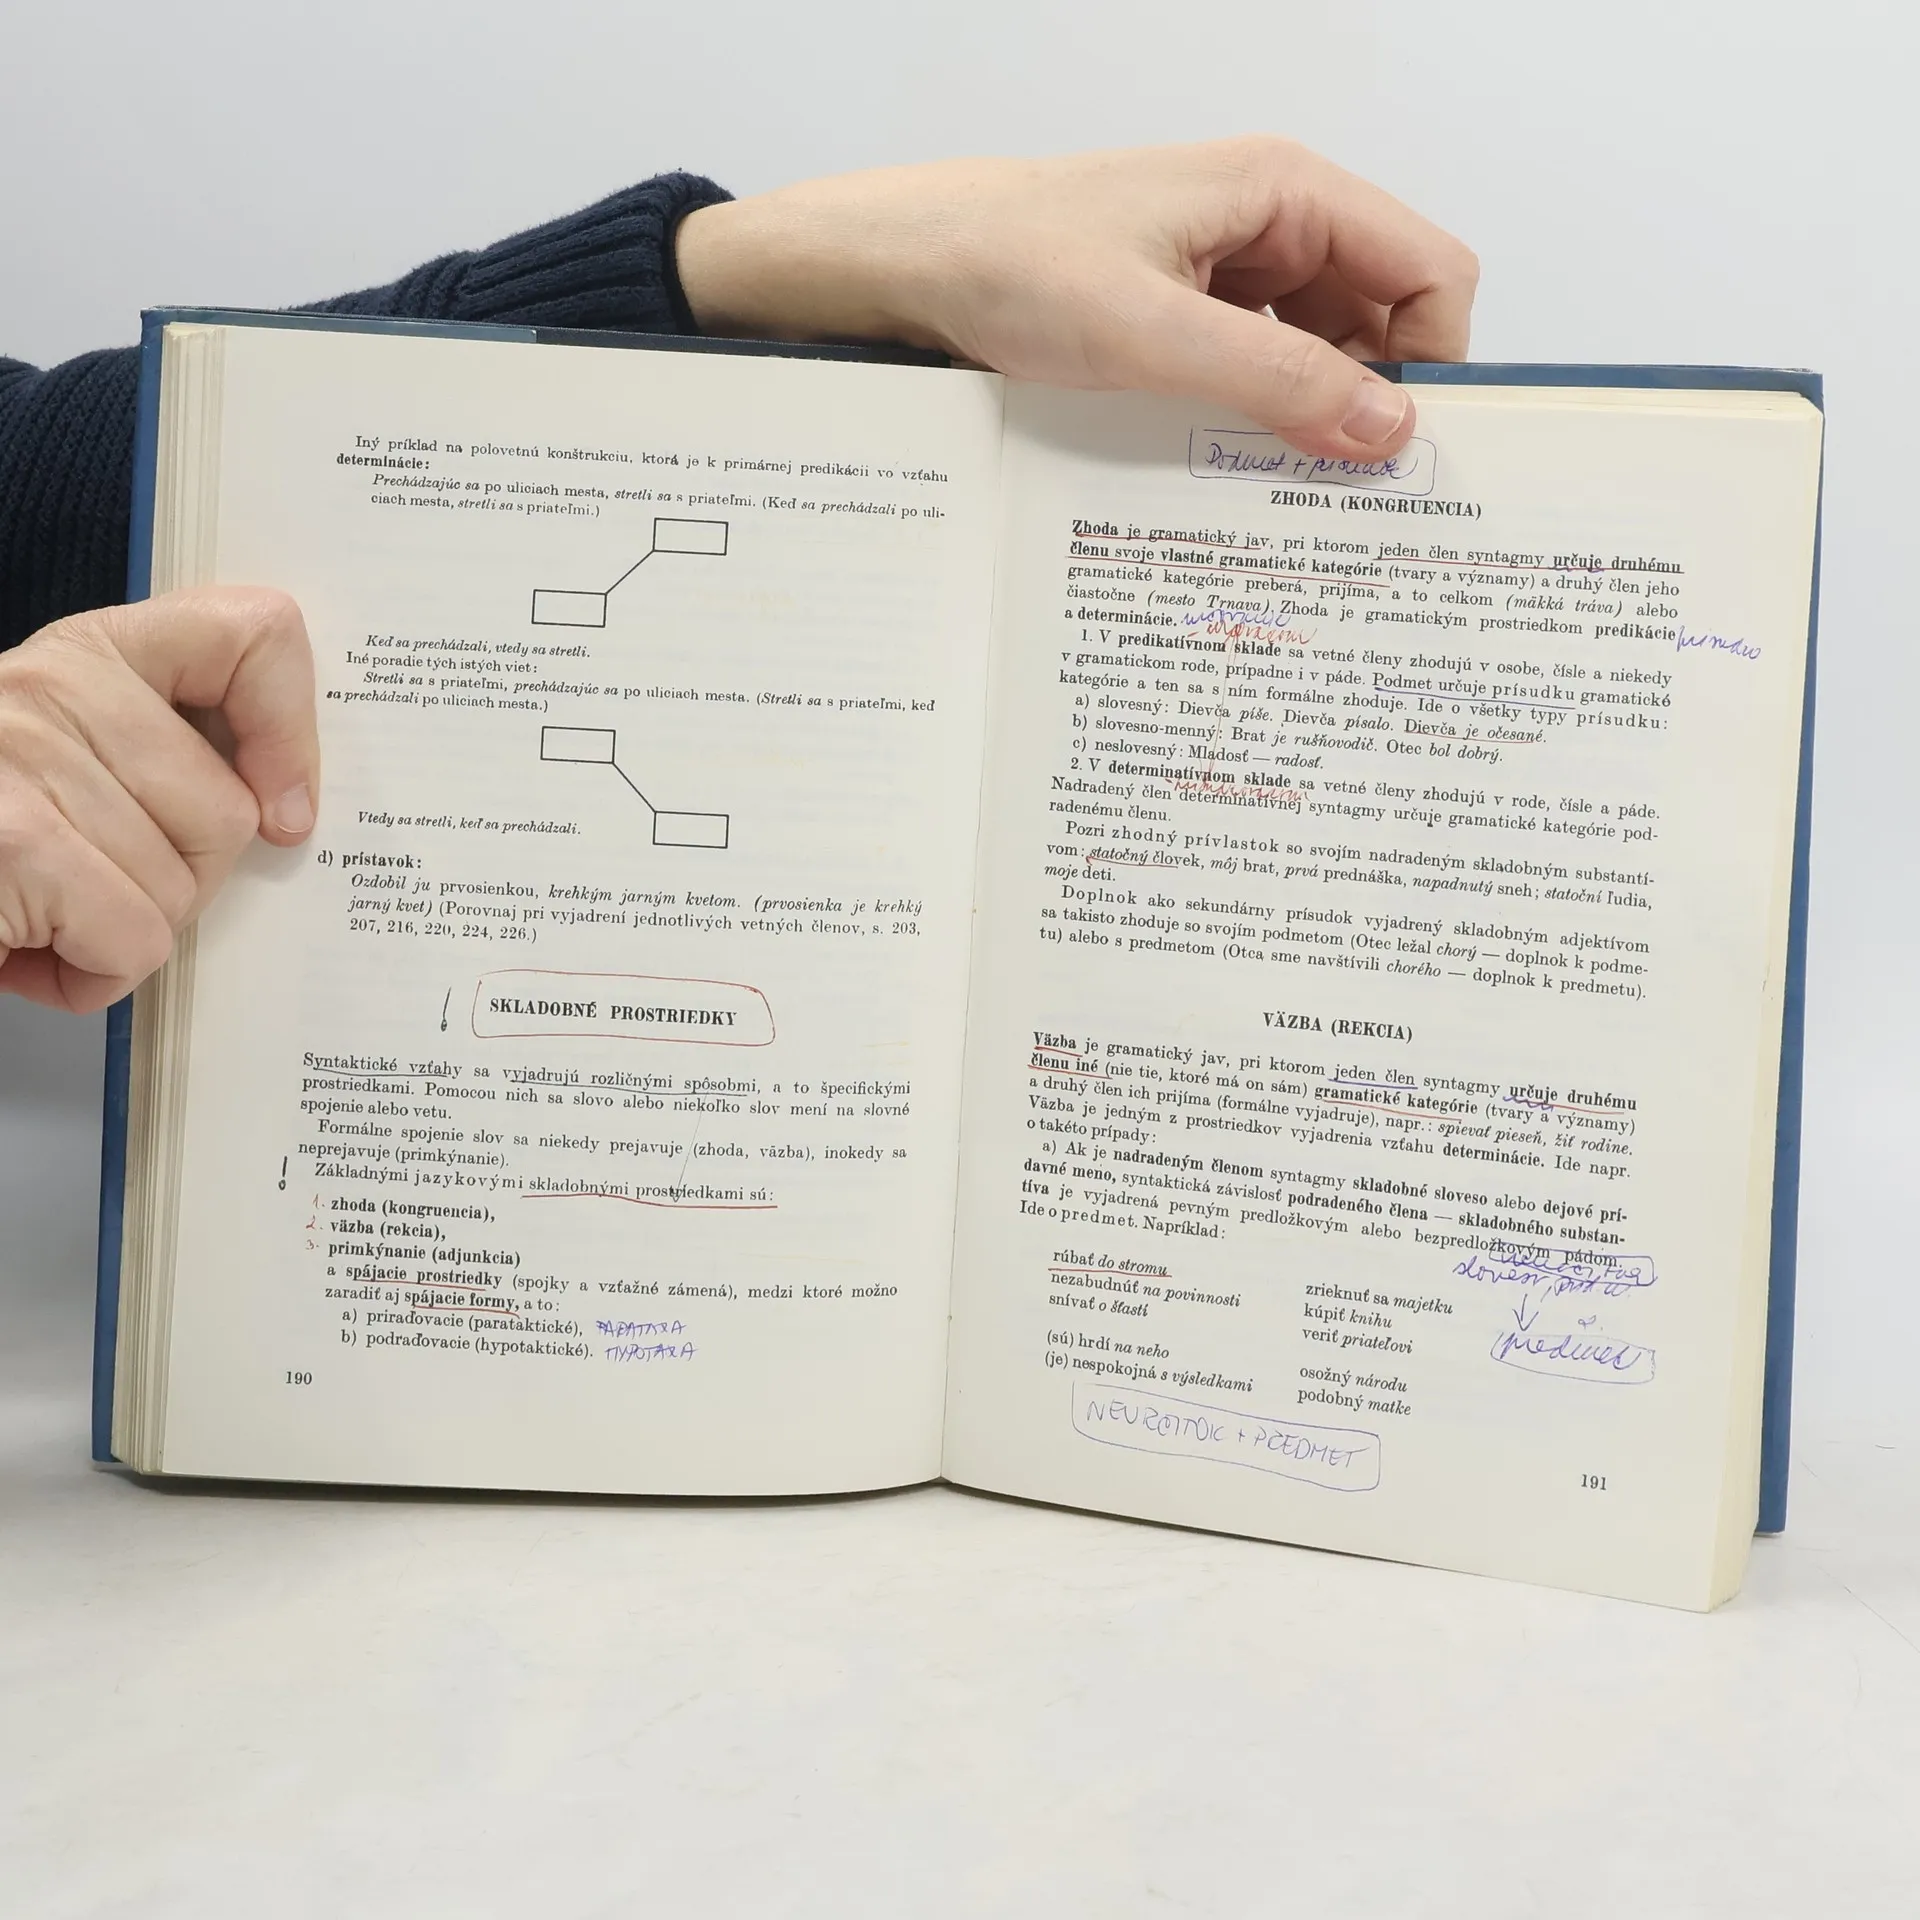 Iný príklad na polovetnú konštrukciu, ktorá je k primárnej predikácii vo vzťahu
determinácie:
Prechádzajúc sa po uliciach mesta, stretli sa s priateľmi. (Keď sa prechádzali po uli-
ciach mesta, stretli sa s priateľmi.)
Keď sa prechádzali, vtedy sa stretli.
Iné poradie tých istých viet:
Stretli sa s priateľmi, prechádzajúc sa po uliciach mesta. (Stretli sa s priateľmi, keď
sa prechádzali po uliciach mesta.)
Vtedy sa stretli, keď sa prechádzali.
d) prístavok:
Ozdobil ju prvosienkou, krehkým jarným kvetom. (prvosienka je krehký
jarný kvet) (Porovnaj pri vyjadrení jednotlivých vetných členov, s. 203,
207, 216, 220, 224, 226.)
! SKLADOBNÉ PROSTRIEDKY
Syntaktické vzťahy sa vyjadrujú rozličnými spôsobmi, a to špecifickými
prostriedkami. Pomocou nich sa slovo alebo niekoľko slov mení na slovné
spojenie alebo vetu.
Formálne spojenie slov sa niekedy prejavuje (zhoda, väzba), inokedy sa
neprejavuje (primkýnanie).
! Základnými jazykovými skladobnými prostriedkami sú:
1. zhoda (kongruencia),
2. väzba (rekcia),
3. primkýnanie (adjunkcia)
a spájacie prostriedky (spojky a vzťažné zámená), medzi ktoré možno
zaradiť aj spájacie formy, a to:
a) priraďovacie (parataktické), PARATAXA
b) podraďovacie (hypotaktické). HYPOTAXA
190
Podmet + prísudok
ZHODA (KONGRUENCIA)
Zhoda je gramatický jav, pri ktorom jeden člen syntagmy určuje druhému
členu svoje vlastné gramatické kategórie (tvary a významy) a druhý člen jeho
gramatické kategórie preberá, prijíma, a to celkom (mäkká tráva) alebo
čiastočne (mesto Trnava). Zhoda je gramatickým prostriedkom predikácie
a determinácie.
1. V predikatívnom sklade sa vetné členy zhodujú v osobe, čísle a niekedy
v gramatickom rode, prípadne i v páde. Podmet určuje prísudku gramatické
kategórie a ten sa s ním formálne zhoduje. Ide o všetky typy prísudku:
a) slovesný: Dievča píše. Dievča písalo. Dievča je očesané.
b) slovesno-menný: Brat je rušňovodič. Otec bol dobrý.
c) neslovesný: Mladosť — radosť.
2. V determinatívnom sklade sa vetné členy zhodujú v rode, čísle a páde.
Nadradený člen determinatívnej syntagmy určuje gramatické kategórie pod-
radenému členu.
Pozri zhodný prívlastok so svojím nadradeným skladobným substantí-
vom: statočný človek, môj brat, prvá prednáška, napadnutý sneh; statoční ľudia,
moje deti.
Doplnok ako sekundárny prísudok vyjadrený skladobným adjektívom
sa takisto zhoduje so svojím podmetom (Otec ležal chorý — doplnok k podme-
tu) alebo s predmetom (Otca sme navštívili chorého — doplnok k predmetu).
VÄZBA (REKCIA)
Väzba je gramatický jav, pri ktorom jeden člen syntagmy určuje druhému
členu iné (nie tie, ktoré má on sám) gramatické kategórie (tvary a významy)
a druhý člen ich prijíma (formálne vyjadruje), napr.: spievať pieseň, žiť rodine.
Väzba je jedným z prostriedkov vyjadrenia vzťahu determinácie. Ide napr.
o takéto prípady:
a) Ak je nadradeným členom syntagmy skladobné sloveso alebo dejové prí-
davné meno, syntaktická závislosť podradeného člena — skladobného substan-
tíva je vyjadrená pevným predložkovým alebo bezpredložkovým pádom.
Ide o predmet. Napríklad:
rúbať do stromu
nezabudnúť na povinnosti
snívať o šťastí
(sú) hrdí na neho
(je) nespokojná s výsledkami
zrieknuť sa majetku
kúpiť knihu
veriť priateľovi
osožný národu
podobný matke
predmet
NEURČITOK + PREDMET
191